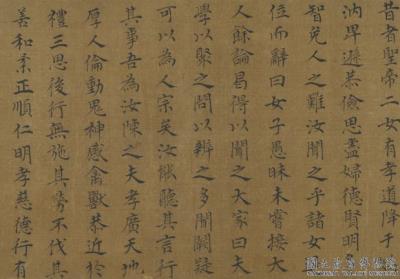 昔者聖帝二女有孝道降于
汭卑遜恭儉思盡婦德賢明
智免人之難汝聞之乎諸女
位而辭曰女子愚昧未嘗接大
人餘論曷得以聞之大家曰夫
學以聚之問以辨之多聞闕疑
可以為人宗矣汝能聽其言行
其事吾為汝陳之夫孝廣天地
厚人倫動鬼神感禽獸恭近於
禮三思後行無施其勞不伐其
善和柔正順仁明孝慈德行有
國立故宮博物院